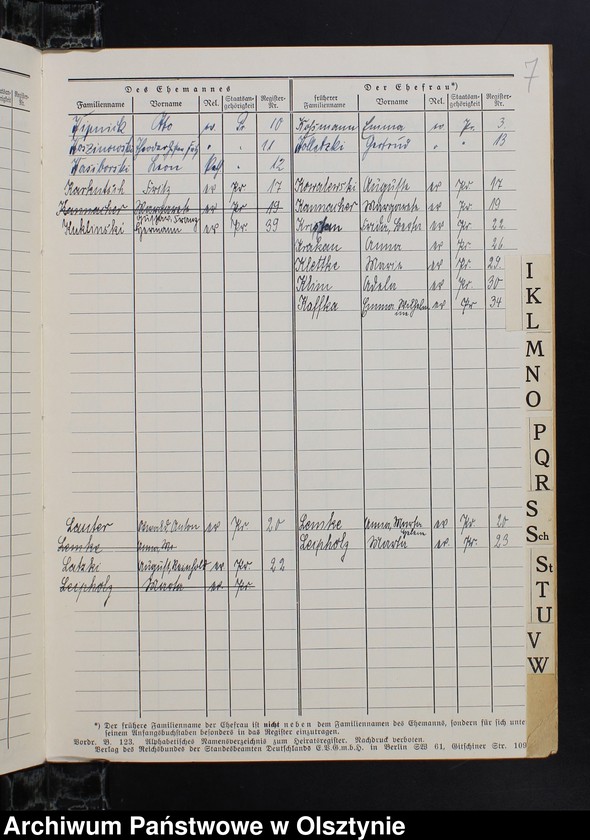 7
Des Ehemannes Der Ehefrau*)
Familienname Vorname Rel. Staatsan-gehörigkeit Register-Nr. früherer Familienname Vorname Rel. Staatsan-gehörigkeit Register-Nr.
Otto ev Pr 10 Emma ev Pr. 3
11 Gertrud " " 13
Wasiborski Leon Kath " 12
Fritz ev Pr 17 Kowalewski Auguste ev Pr 17
Kannacher Margarete ev Pr 19 Kannacher Margarete ev Pr 19
Kuklinski Gustav, Franz Hermann ev Pr. 39 Frida, Berta ev Pr 22.
Krakau Anna ev Pr 26
Klettke Marie ev Pr 29.
Klim Adela ev Pr 30
Kaffka Emma, Wilhelmine ev Pr 34
I
K
L
M
N
O
P
Q
R
S
Sch
St
T
U
V
W
Lauter Anton ev Pr 20 Lemke Anna, Martha ev Pr. 20
Lemke Anna, Ma Leipholz Marta ev Pr. 23
Latzki August, Reinhold ev Pr 22
Leipholz Marta ev Pr
*) Der frühere Familienname der Ehefrau ist nicht neben dem Familiennamen des Ehemanns, sondern für sich unte
seinem Anfangsbuchstaben besonders in das Register einzutragen.
Vordr. B. 123. Alphabetisches Namensverzeichnis zum Heiratsregister. Nachdruck verboten.
Verlag des Reichsbundes der Standesbeamten Deutschlands E.V.G.m.b.H. in Berlin SW 61, Gitschiner Str. 109
Archiwum Państwowe w Olsztynie